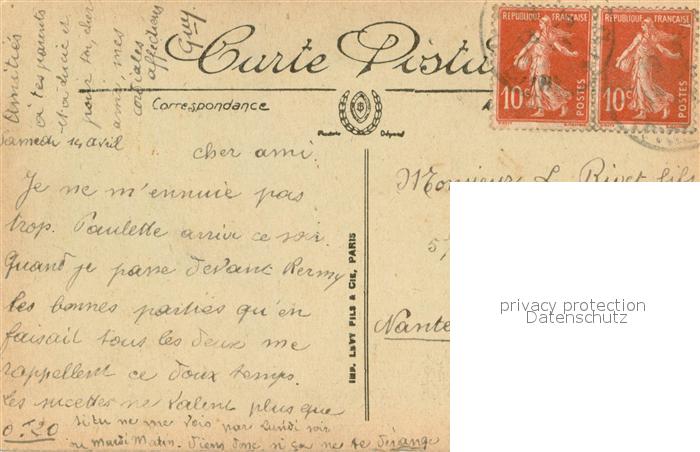 Amitiés
à tes parents
et à Lucie et
pour toi, cher
ami, mes
cordiales
affections
Guy
Carte Postale
Correspondance
Modèle Déposé
RÉPUBLIQUE FRANÇAISE
10c POSTES
RÉPUBLIQUE FRANÇAISE
10c POSTES
Samedi 14 Avril
cher ami.
Je ne m'ennuie pas
trop. Paulette arrive ce soir.
Quand je passe devant
les bonnes parties qu'on
faisait tous les deux me
rappellent ce doux temps.
Les sucettes ne valent plus que
0.20
si tu ne me vois pas Lundi soir
ou Mardi Matin. Viens donc, si ça ne te dérange
IMP. LEVY FILS & CIE, PARIS
Monsieur L. Rivet fils
57
Nante
privacy protection
Datenschutz